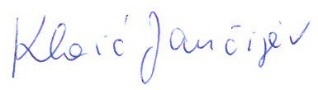 Klaić Jančijev